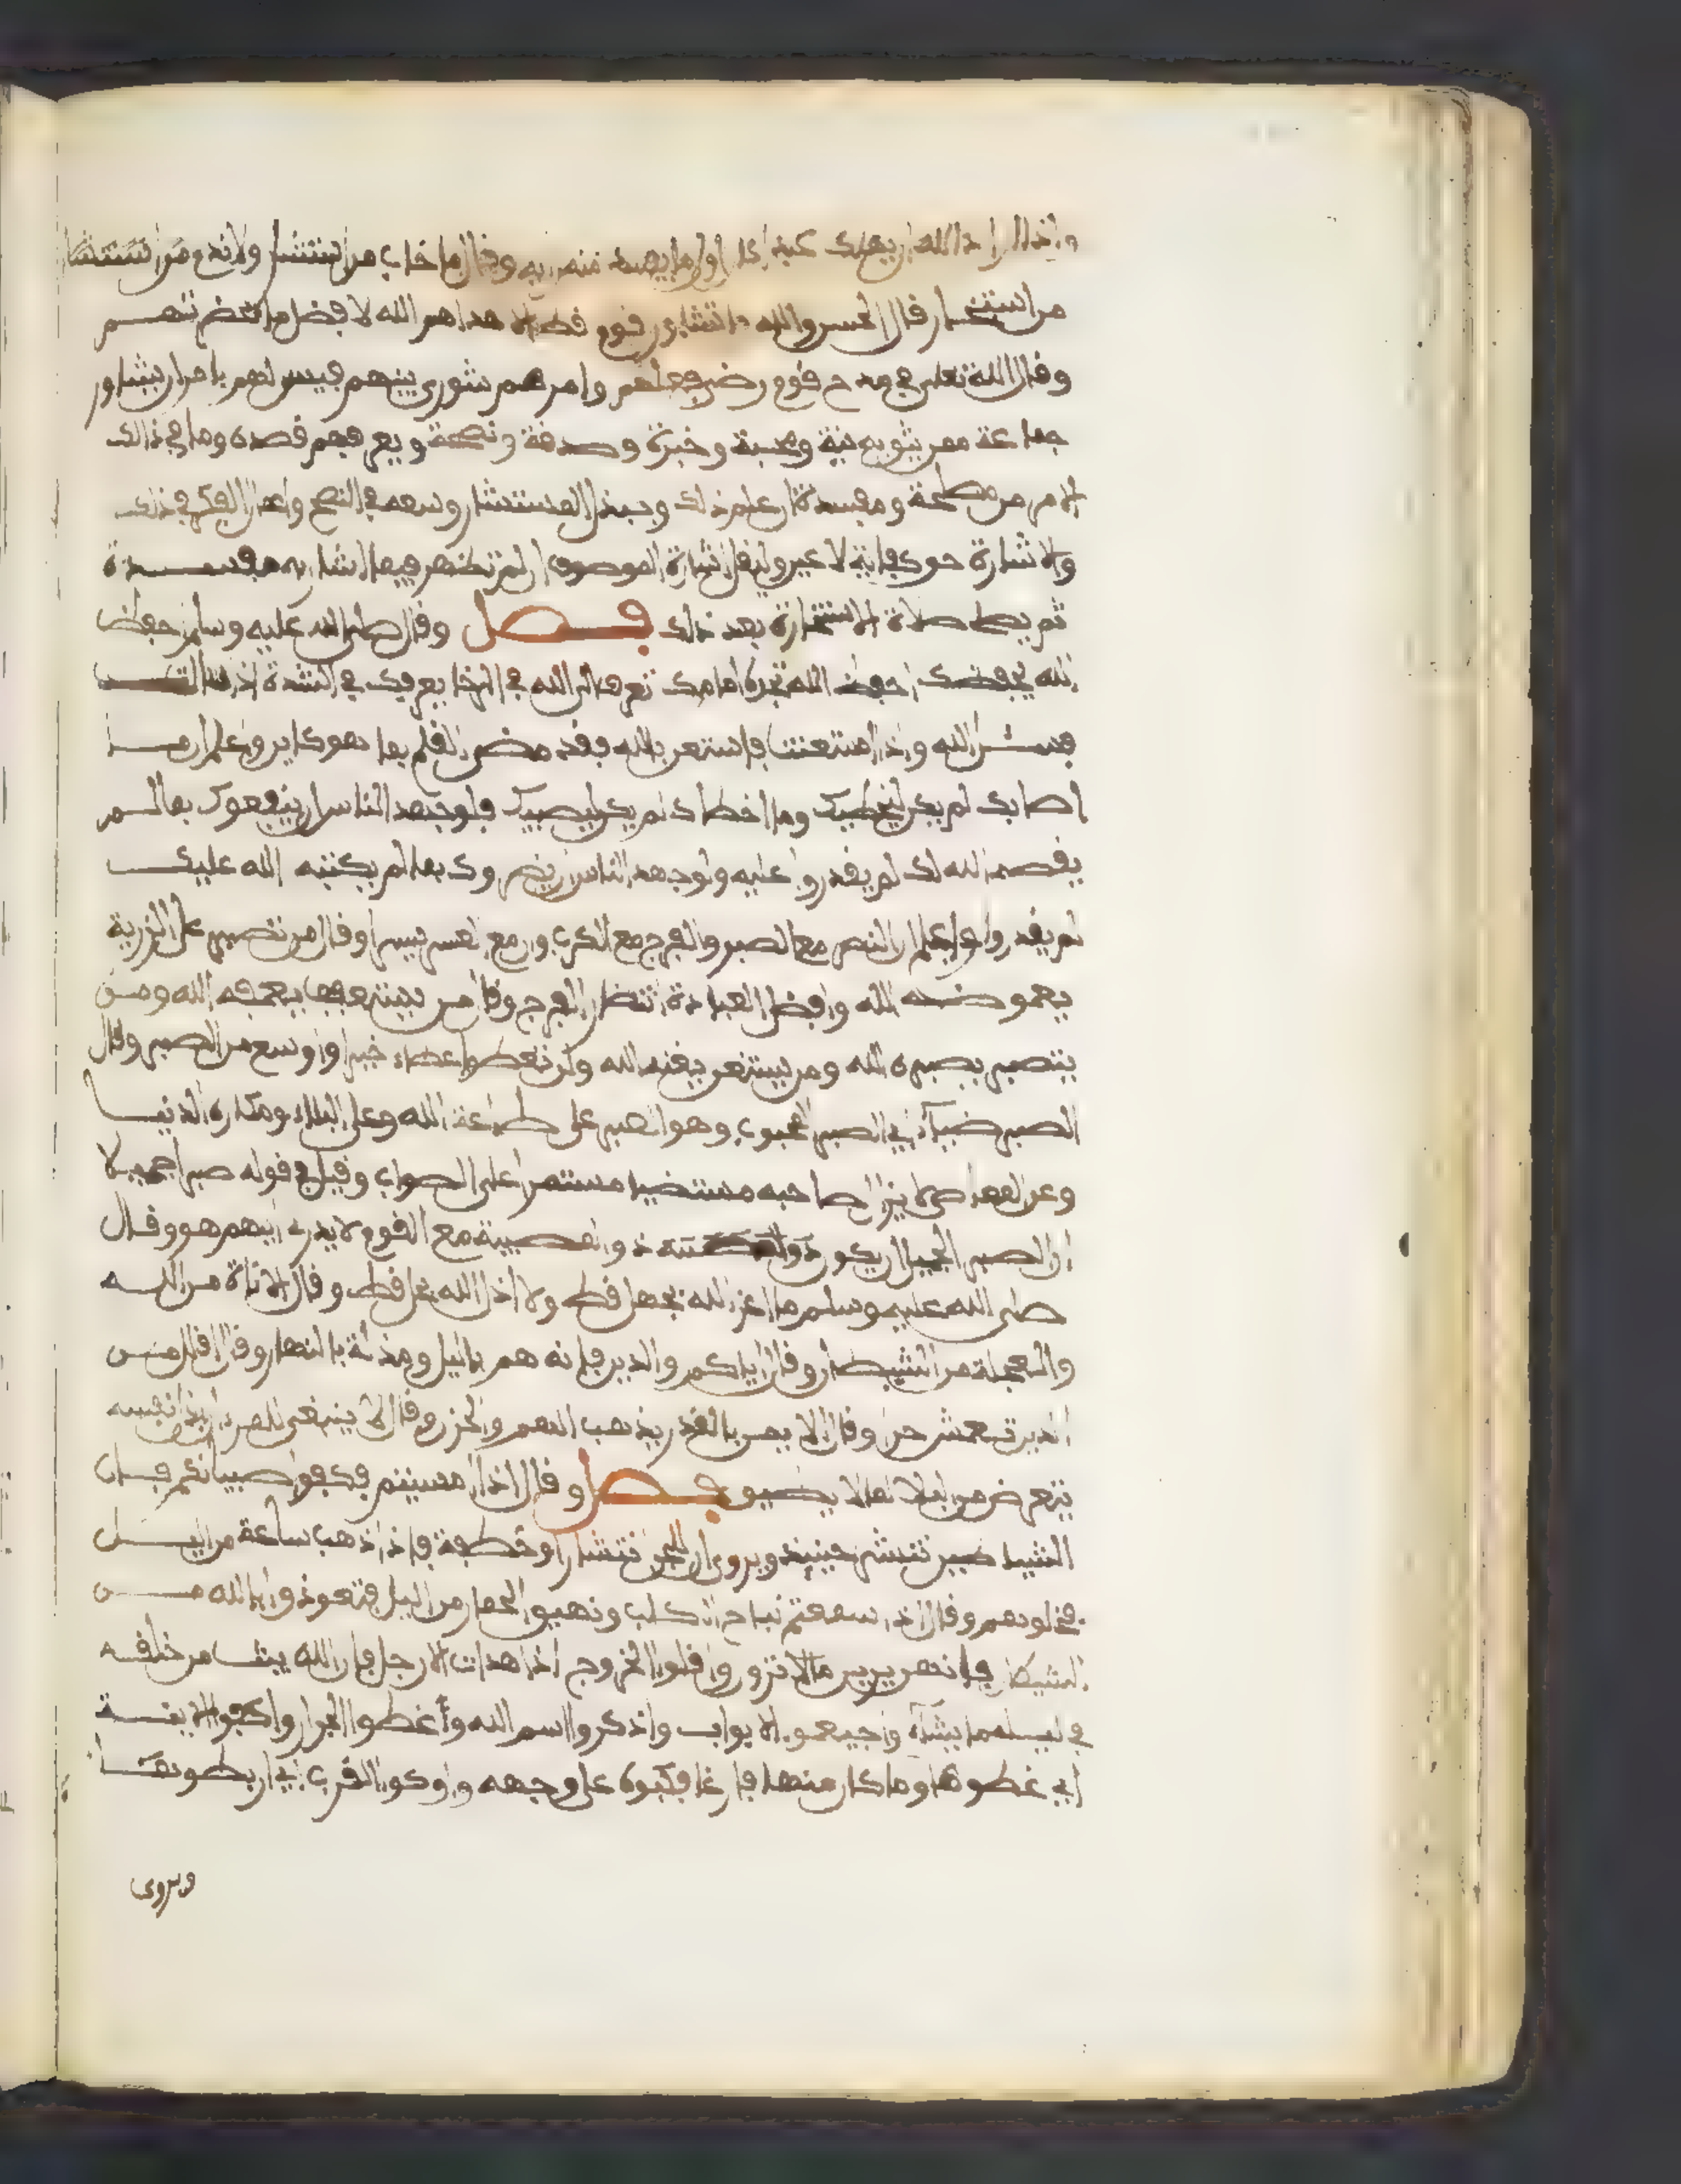 واذا اراد الله ان يهلك عبدا كان اول ما يفسد منه رايه وقال ما خاب من استشار ولا ندم من استشار
من استخار قال الحسن والله ما تشاور قوم قط الا هداهم الله لافضل ما بحضرتهم
وقال الله تعلى في مدح قوم رضي فعلهم وامرهم شورى بينهم فيسن لمهم بامر ان يشاور
جماعة ممن يثق به نية ومحبة وخبرة وصدقة ونصحة ويعرفهم قصده وما في ذالك
الامر من مصلحة ومفسدة ان علم ذلك ويبذل المستشار وسعه في النصح واعمال الفكر في ذلك
والاشارة حق كفاية لا عين وليقل اشارة الموصوف ان لم تظهر فيما اشار به مفسدة
ثم يصلي صلاة الاستخارة بعد ذلك فصل وقال صلى الله عليه وسلم احفظ
الله يحفظك احفظ الله تجده امامك تعرف الى الله في الرخا يعرفك في الشدة اذا سالت
فسئل الله واذا استعنت فاستعن بالله فقد مضى القلم بما هو كاين واعلم ان ما
اصابك لم يكن ليخطيك وما اخطاك لم يكن ليصيبك فلو جهد الناس ان ينفعوك بما لم
يقضه الله لك لم يقدروا عليه ولو جهد الناس ان يضروك بما لم يكتبه الله عليك
لم يقدروا واعلم ان النصر مع الصبر والفرج مع الكرب وان مع العسر يسرا وقال من تصبر على الرزية
يعوضه الله وافضل العبادة انتظار الفرج وقال من يستعفف يعفه الله ومن
يتصبر يصبره الله ومن يستغن يغنه الله ولن تعطوا عطاء خيرا واوسع من الصبر وقال
الصبر ضياء اي الصبر المحبوب وهو الصبر على طاعة الله وعلى البلاء ومكاره الدنيا
وعن المعاصي لا يزال صاحبه مستضيا مستمرا على الصواب وقيل في قوله صبرا جميلا
ان الصبر الجميل ان يكون ذو المصيبة مع القوم لا يدرى ايهم هو وقال
صلى الله عليه وسلم ما اعز الله بجهل قط ولا اذل الله بحلم قط وقال الاناة من الله
والعجلة من الشيطان وقال اياكم والدين فانه هم باليل ومذلة بالنهار وقال اقلل من
الدين تعش حرا وقال الايمن بالقدر يذهب الهم والحزن وقال لا ينبغي للمرء ان يذل نفسه
يتعرض من البلا لما لا يطيق فصل وقال اذا امسيتم فكفوا صبيانكم فان
الشياطين تنتشر حينيذ ويروى ان للجن انتشارا وخطفة فاذا ذهب ساعة من اليل
فخلوهم وقال اذا سمعتم نباح الكلب ونهيق الحمار من اليل فتعوذوا بالله من
الشيطان فانهن يرين ما لا ترون واقلوا الخروج اذا هدات الارجل فان الله يبث من خلقه
في ليله ما يشاء واجيفوا الابواب واذكروا اسم الله وأغطوا الجرار واكفوا الانية
اي غطوها وما كان منها فارغا فكبوه على وجهه واوكوا القرب اي اربطوا فمها
ويروى